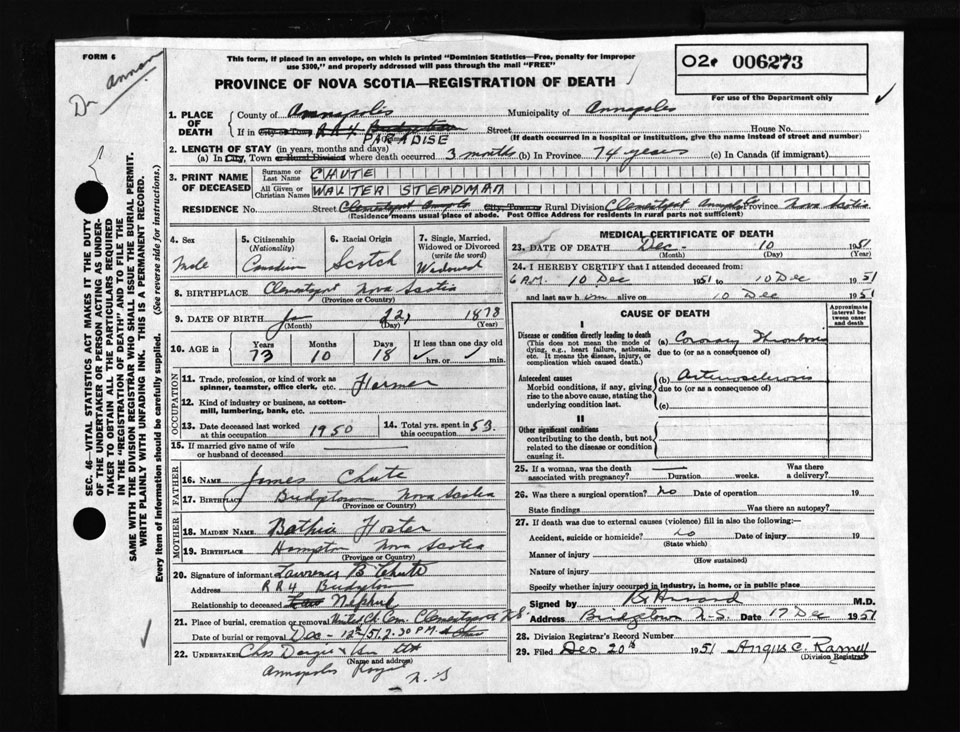 FORM 6
Dr annan
This form, if placed in an envelope, on which is printed "Dominion Statistics—Free, penalty for improper
use $300," and properly addressed will pass through the mail "FREE"
PROVINCE OF NOVA SCOTIA—REGISTRATION OF DEATH
02 006273
For use of the Department only
1. PLACE OF DEATH County of Annapolis Municipality of Annapolis
If in City or Town RR4 Bridgetown Street House No.
PARADISE (If death occurred in a hospital or institution, give name instead of street and number)
2. LENGTH OF STAY (in years, months and days)
(a) In City, Town or Rural Division where death occurred 3 months (b) In Province 74 years (c) In Canada (if immigrant)
3. PRINT NAME OF DECEASED Surname or Last Name CHUTE
All Given or Christian Names WALTER STEADMAN
RESIDENCE No. Street Clementsport City, Town or Rural Division Clementsport Annapolis Province Nova Scotia
(Residence means usual place of abode. Post Office Address for residents in rural parts not sufficient)
4. Sex Male
5. Citizenship (Nationality) Canadian
6. Racial Origin Scotch
7. Single, Married, Widowed or Divorced (write the word) Widowed
8. BIRTHPLACE Clementsport Nova Scotia
(Province or Country)
9. DATE OF BIRTH Jan 22, 1878
(Month) (Day) (Year)
10. AGE in Years 73 Months 10 Days 18 If less than one day old hrs. or min.
OCCUPATION
11. Trade, profession, or kind of work as spinner, teamster, office clerk, etc. Farmer
12. Kind of industry or business, as cotton-mill, lumbering, bank, etc.
13. Date deceased last worked at this occupation 1950
14. Total yrs. spent in this occupation 53.
15. If married give name of wife or husband of deceased
FATHER
16. NAME James Chute
17. BIRTHPLACE Bridgetown Nova Scotia
(Province or Country)
MOTHER
18. MAIDEN NAME Bathia Foster
19. BIRTHPLACE Hampton Nova Scotia
(Province or Country)
20. Signature of informant Lawrence B Chute
Address RR4 Bridgetown
Relationship to deceased Nephew
21. Place of burial, cremation or removal United Ch. Cem. Clementsport N.S.
Date of burial or removal Dec - 12th/51, 2.30 P.M.
22. UNDERTAKER Chas Dargie & Son Ltd
(Name and address)
Annapolis Royal
N.S
MEDICAL CERTIFICATE OF DEATH
23. DATE OF DEATH Dec - 10 1951
(Month) (Day) (Year)
24. I HEREBY CERTIFY that I attended deceased from:
6 A.M. 10 Dec 1951 to 10 Dec 1951
and last saw him alive on 10 Dec 1951
CAUSE OF DEATH
Approximate interval between onset and death
I
Disease or condition directly leading to death (a) Coronary Thrombosis
(This does not mean the mode of dying, e.g., heart failure, asthenia, etc. It means the disease, injury, or complication which caused death.) due to (or as a consequence of)
Antecedent causes (b) Arteriosclerosis
Morbid conditions, if any, giving rise to the above cause, stating the underlying condition last. due to (or as a consequence of)
(c)
II
Other significant conditions
contributing to the death, but not related to the disease or condition causing it.
25. If a woman, was the death associated with pregnancy? Duration weeks. Was there a delivery?
26. Was there a surgical operation? No Date of operation 19
State findings Was there an autopsy?
27. If death was due to external causes (violence) fill in also the following:—
Accident, suicide or homicide? no Date of injury 19
(State which)
Manner of injury
(How sustained)
Nature of injury
Specify whether injury occurred in industry, in home, or in public place
Signed by M.D.
Address Bridgetown N.S. Date 17 Dec 1951
28. Division Registrar's Record Number
29. Filed Dec 20th 1951 Angus C. Ramey
(Division Registrar)
SEC. 46—VITAL STATISTICS ACT MAKES IT THE DUTY
OF THE UNDERTAKER OR PERSON ACTING AS UNDER-
TAKER TO OBTAIN ALL THE PARTICULARS REQUIRED
IN THE "REGISTRATION OF DEATH" AND TO FILE THE
SAME WITH THE DIVISION REGISTRAR WHO SHALL ISSUE THE BURIAL PERMIT.
WRITE PLAINLY WITH UNFADING INK. THIS IS A PERMANENT RECORD.
Every item of information should be carefully supplied. (See reverse side for instructions.)